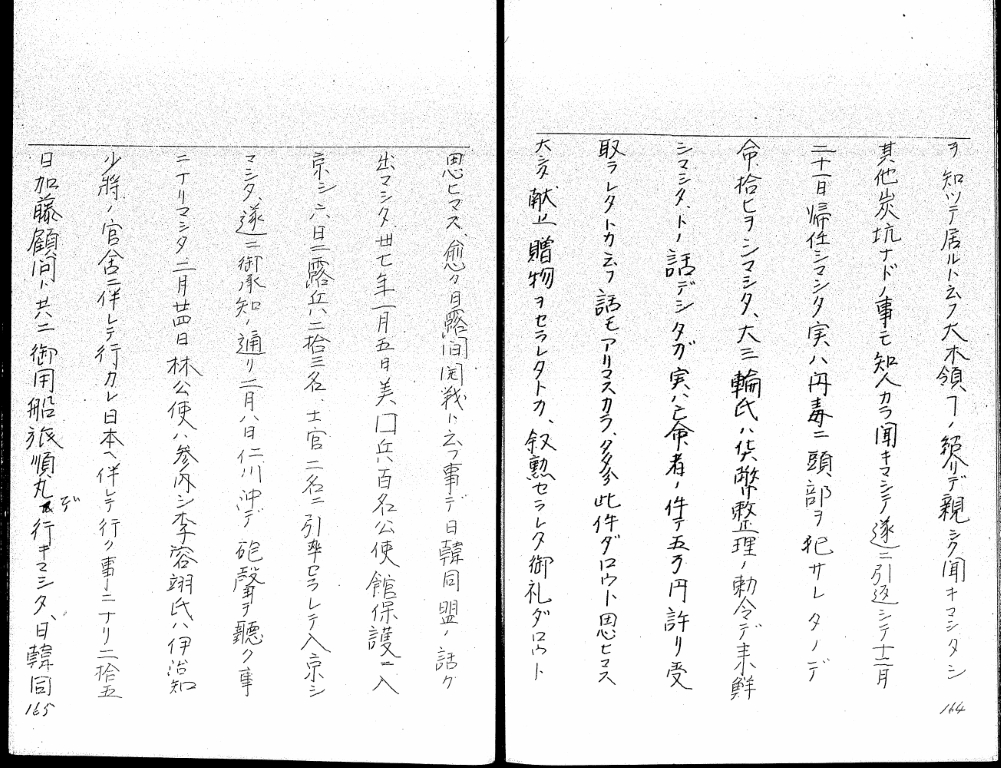 ヲ知ツテ居ルト云フ大木領フノ紹介デ親シク聞キマシタシ
其他炭坑ナドノ事モ知人カラ聞キマシテ遂ニ引返シテ十二月
二十一日帰任シマシタ実ハ丹毒ニ頭部ヲ犯サレタノデ
命拾ヒヲシマシタ、大三輪氏ハ貨幣整理ノ勅令デ来鮮
シマシタ、トノ話デシタガ実ハ亡命者ノ件デ五万円許リ受
取ラレタトカ云フ話モアリマスカラ、多分此件ダロウト思ヒマス
大分献上贈物ヲセラレタトカ、叙勲セラレタ御礼ダロウト
164
思ヒマス、愈々日露間開戦ト云フ事デ日韓同盟ノ話ガ
出マシタ丗七年一月五日美国兵百名公使館保護ニ入
京シ六日ニ露兵二拾三名、士官二名ニ引率セラレテ入京シ
マシタ、遂ニ御承知ノ通リ二月八日仁川沖デ砲聲ヲ聴ク事
ニナリマシタ二月廿四日林公使ハ参内シ李容翊氏ハ伊治知
少將ノ官舎ニ伴レテ行カレ日本ヘ伴レテ行ク事ニナリ二拾五
日加藤顧問ト共ニ御用船旅順丸デ行キマシタ、日韓同
165